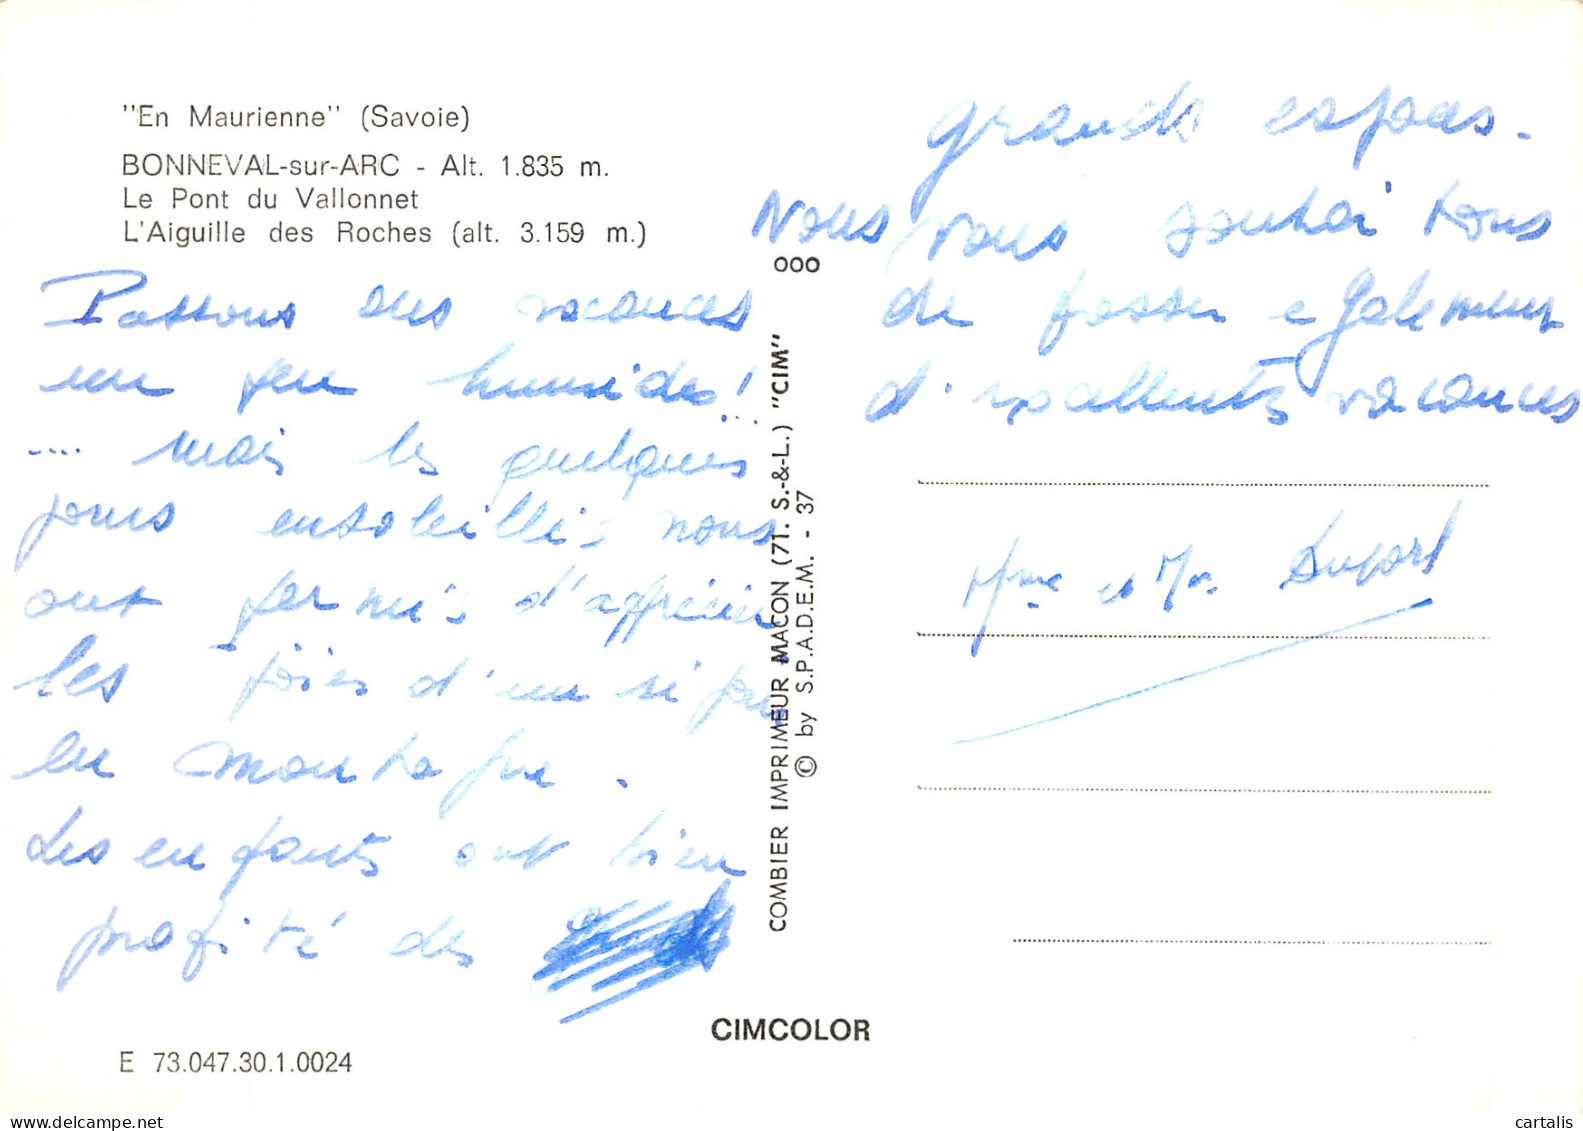 "En Maurienne" (Savoie)
BONNEVAL-sur-ARC - Alt. 1.835 m.
Le Pont du Vallonnet
L'Aiguille des Roches (alt. 3.159 m.)
Passons des vacances
un peu humides! ...
.... mais les quelques
jours ensoleillés nous
ont permis d'apprécier
les joies d'un séjour
en montagne.
Les enfants ont bien
profité des
grands espaces.
Nous vous souhaitons
de passer également
d'excellentes vacances
Mme et Mr. Dupart
OOO
COMBIER IMPRIMEUR MACON (71. S.-&-L.) "CIM"
© by S.P.A.D.E.M. - 37
CIMCOLOR
E 73.047.30.1.0024
www.delcampe.net
cartalis